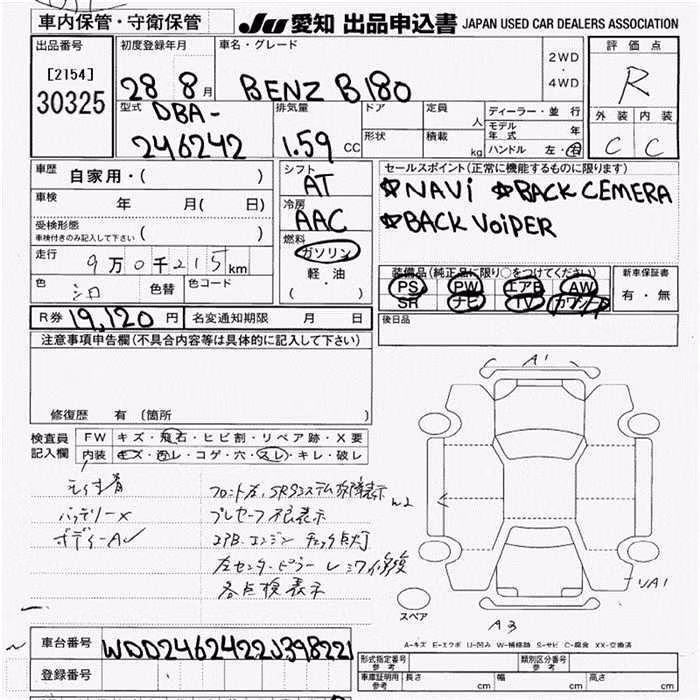 車内保管・守衛保管
JU 愛知 出品申込書 JAPAN USED CAR DEALERS ASSOCIATION
出品番号
[2154]
30325
初度登録年月
28 8月
車名・グレード
BENZ B180
2WD
・
4WD
評価点
R
外装 内装
C C
型式
DBA-
246242
排気量
1.59 CC
ドア
定員
人
形状
積載
kg
ディーラー・並行
モデル年式
年
ハンドル 左・右
車歴
自家用・( )
車検
年 月( 日)
受検形態
車検付きのみ記入して下さい ( )
走行
9万0千215km
色
シロ
色替
色コード
シフト
AT
冷房
AAC
燃料
ガソリン
軽・油
( ・ )
セールスポイント(正常に機能するものに限ります)
☆NAVi ☆BACK CEMERA
☆BACK VoiPER
装備品(純正品に限り○をつけてください)
PS PW エアB AW
SR ナビ TV カワシート
新車保証書
有・無
R券 19,120円
名変通知期限 月 日
後日品
注意事項申告欄(不具合内容等は具体的に記入して下さい)
修復歴 有 (箇所 )
検査員
記入欄
FW キズ・飛石・ヒビ割・リペア跡・X要
内装 キズ・汚レ・コゲ・穴・スレ・キレ・破レ
バッテリーX
ボディーA
フロントガ、SRSシステム故障表示
プレセーフ不良表示
エアB、エンジン チェック点灯
左センターピラー
各点検表示
A1
W2
UA1
A3
スペア
A-キズ E-エクボ U-凹み W-補修跡 S-サビ C-腐食 XX-交換済
車台番号
WDD2462422J398221
登録番号
形式指定番号
参考
類別区分番号
参考
車庫証明用
参考
長さ cm
幅 cm
高さ cm